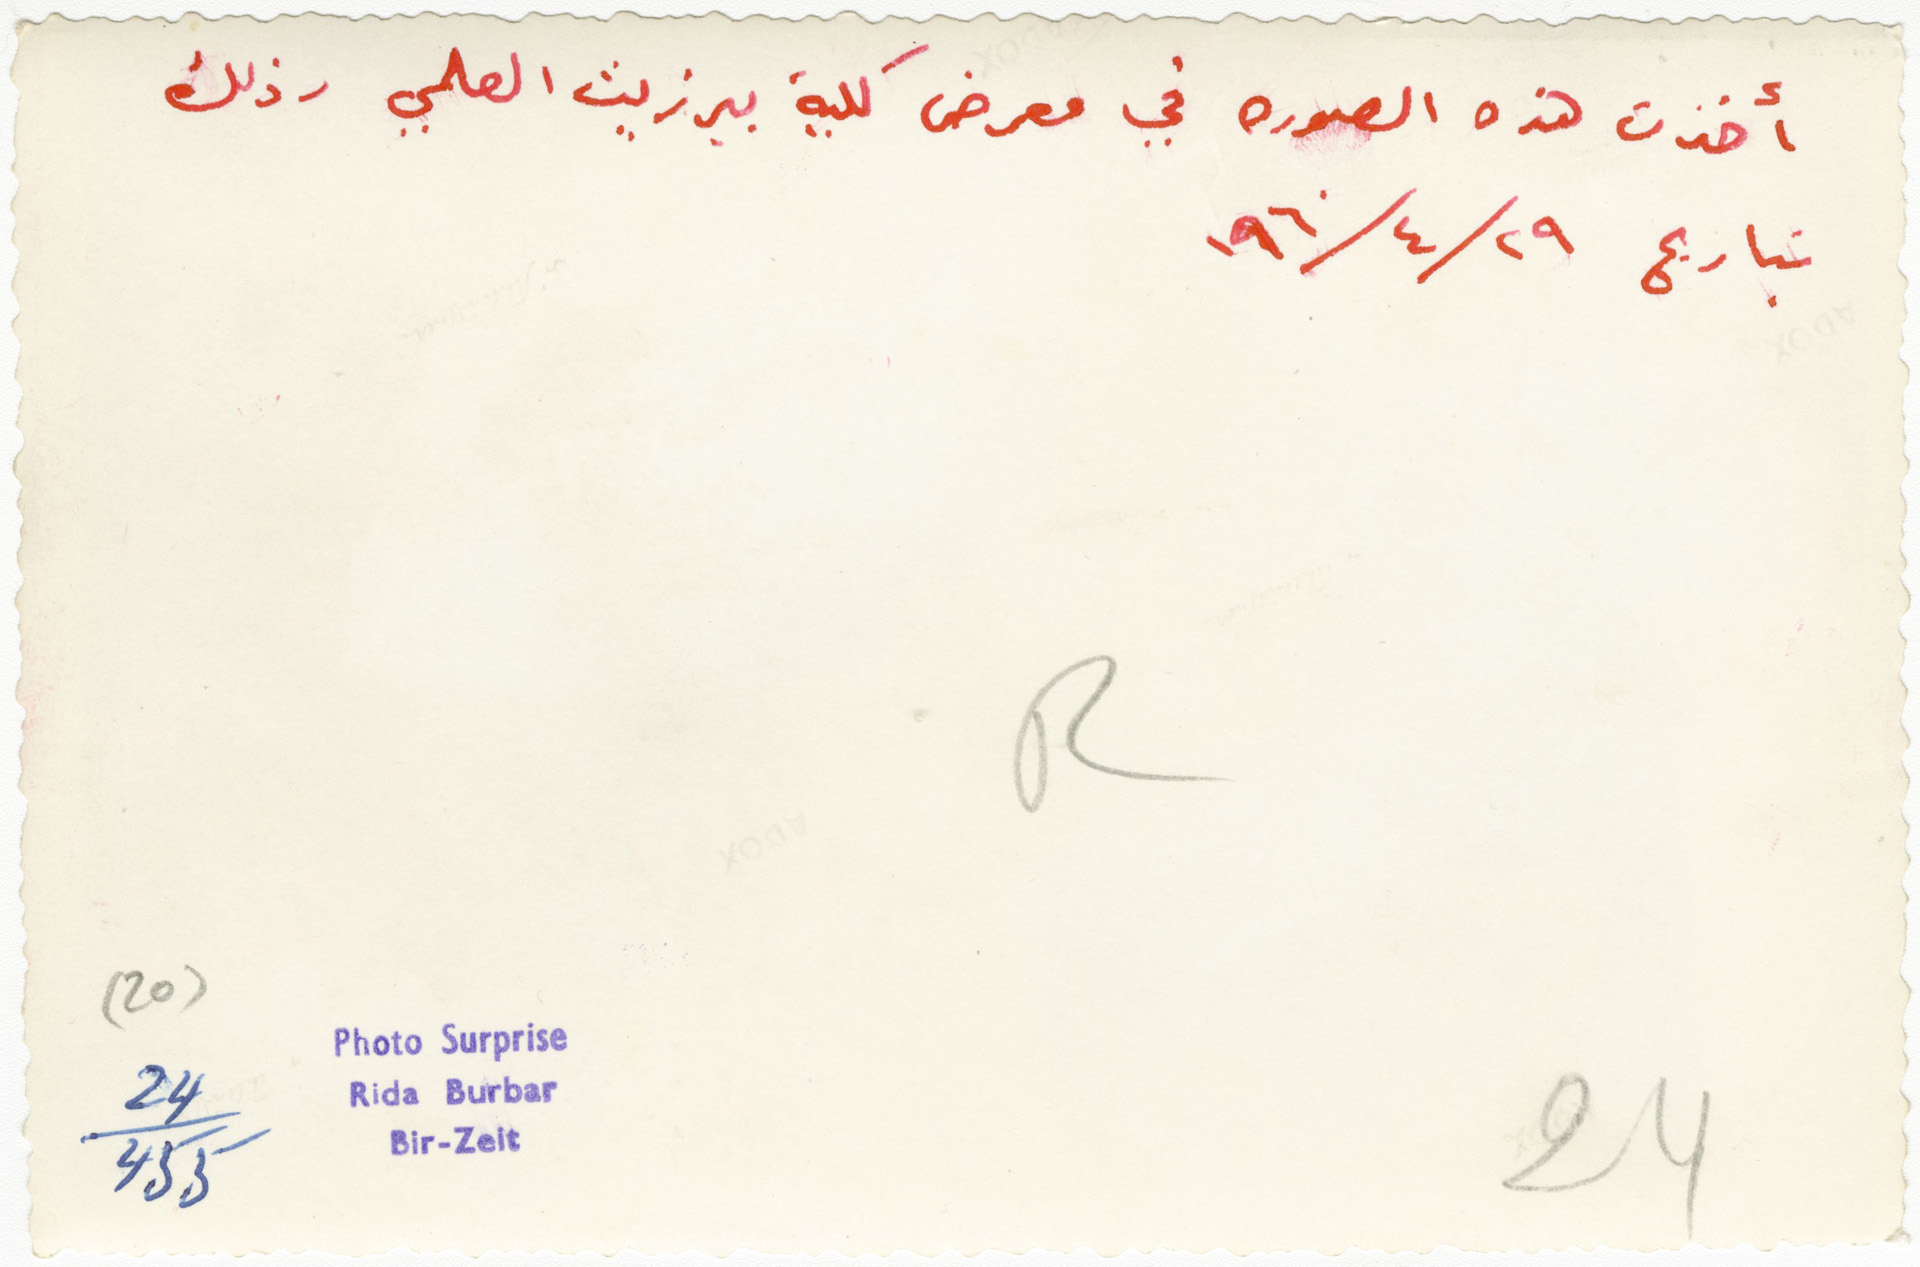 أخذت هذه الصوره في معرض كلية بيرزيت العلمي وذلك
بتاريخ ٢٩/٤/١٩٦٠
R
(20)
24/455
Photo Surprise
Rida Burbar
Bir-Zeit
24
ADOX
ADOX
ADOX